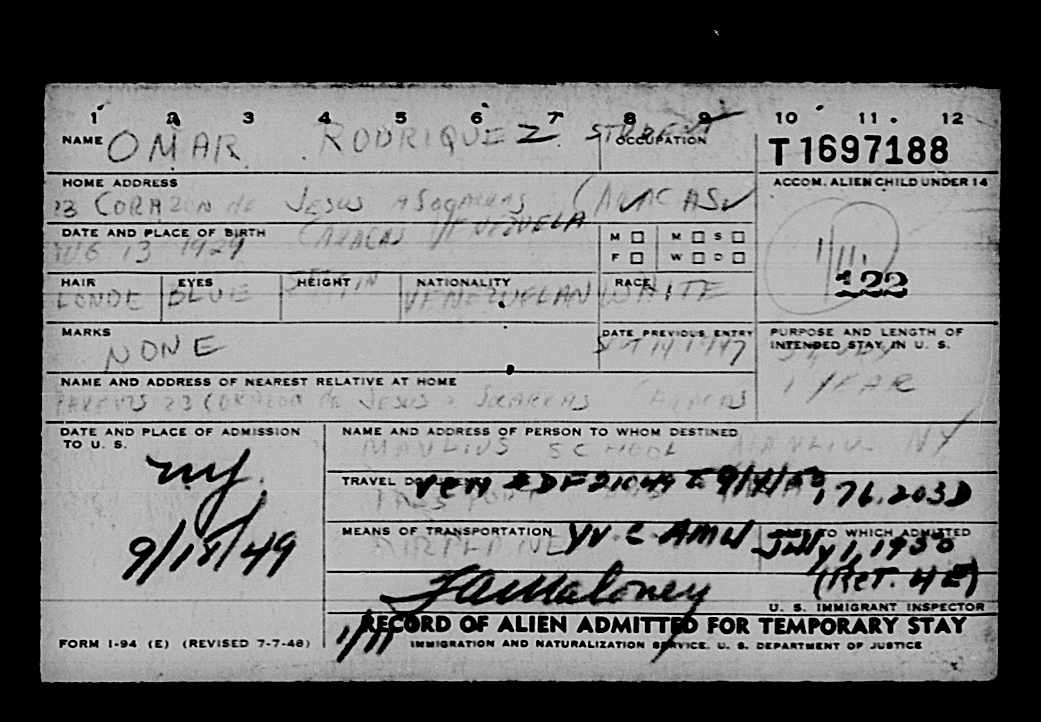 1 2 3 4 5 6 7 8 9 10 11 12
NAME OMAR RODRIQUEZ STUDENT OCCUPATION
T 1697188
HOME ADDRESS
ACCOM. ALIEN CHILD UNDER 14
23 CORAZON de JESUS A SOCARRAS CARACAS
DATE AND PLACE OF BIRTH CARACAS VENEZUELA
M M S
AUG 13 1929
F W D
1/111
122
HAIR EYES HEIGHT NATIONALITY RACE
LONDE BLUE VENEZUELAN WHITE
MARKS
DATE PREVIOUS ENTRY
PURPOSE AND LENGTH OF INTENDED STAY IN U. S.
NONE
14 1947
STUDY
1 YEAR
NAME AND ADDRESS OF NEAREST RELATIVE AT HOME
PARENTS 23 CORAZON de JESUS a SOCARRAS CARACAS
DATE AND PLACE OF ADMISSION TO U. S.
NAME AND ADDRESS OF PERSON TO WHOM DESTINED
MANLIUS SCHOOL MANLIUS NY
ny.
9/15/49
TRAVEL DOCUMENT
PASSPORT
MEANS OF TRANSPORTATION
DATE TO WHICH ADMITTED
AIRPLANE YV C AMU July 1, 1950
(RET. 4E)
U. S. IMMIGRANT INSPECTOR
RECORD OF ALIEN ADMITTED FOR TEMPORARY STAY
FORM I-94 (E) (REVISED 7-7-48)
IMMIGRATION AND NATURALIZATION SERVICE, U. S. DEPARTMENT OF JUSTICE